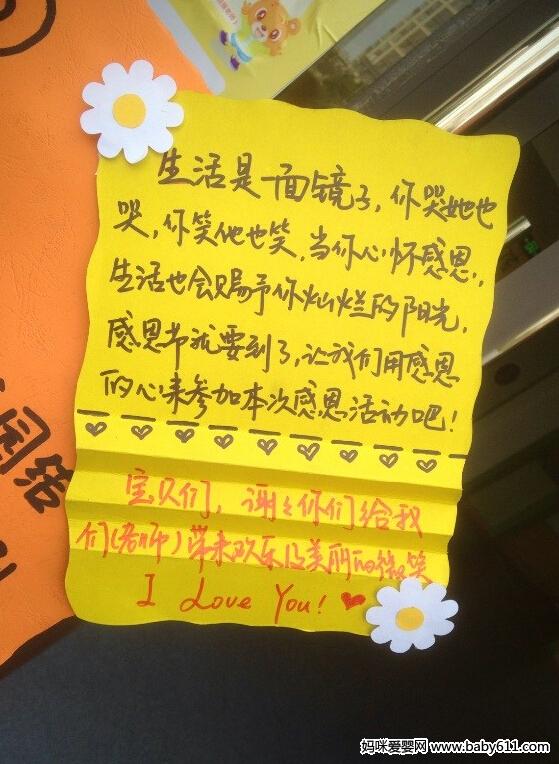 生活是一面镜子,你哭她也
哭,你笑他也笑,当你心怀感恩,
生活也会赐予你灿烂的阳光,
感恩节就要到了,让我们用感恩
的心来参加本次感恩活动吧!
宝贝们,谢谢你们给我
们(老师)带来欢乐及美丽的微笑
I Love You!
团结
妈咪爱婴网 www.baby611.com